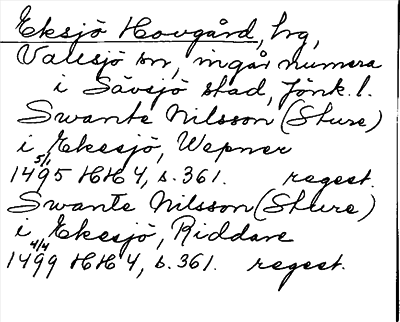 Eksjö Hovgård, hg,
Vallsjö sn, ingår numera
i Sävsjö stad, Jönk. l.
Swante Nilsson (Sture)
i Ekesjö, Wepner
5/1
1495 HH 4, s. 361. regest.
Swante Nilsson (Sture)
i Ekesjö, Riddare
4/4
1499 HH 4, s. 361. regest.